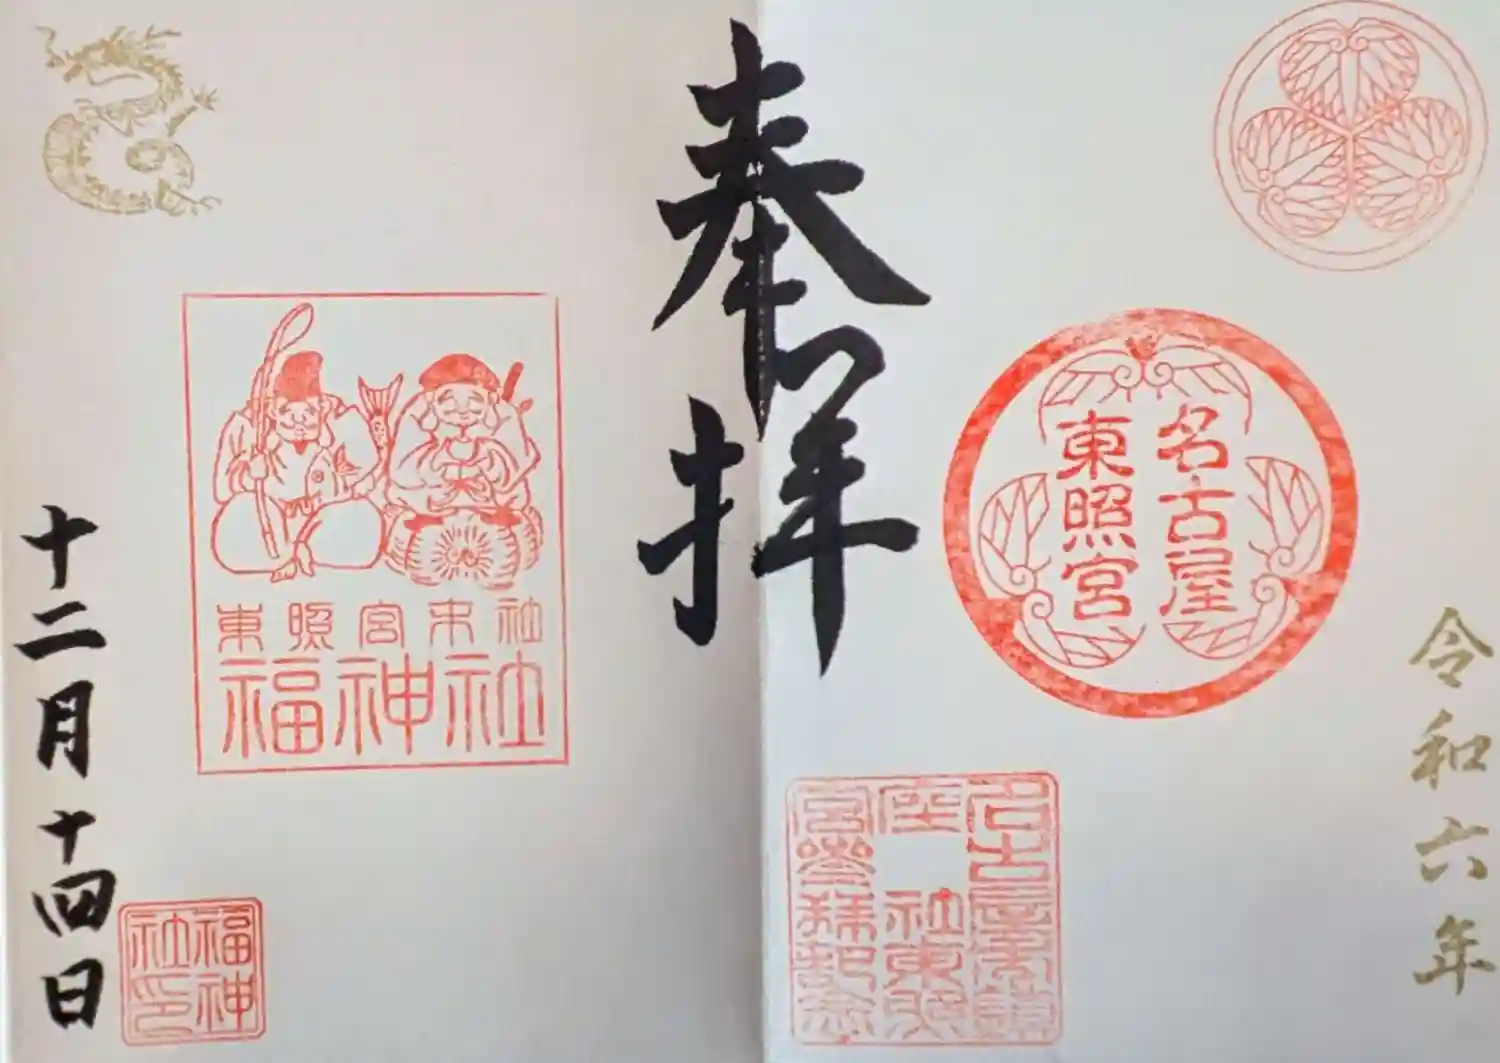 奉拝
名古屋
東照宮
令和六年
東照宮末社
福神社
十二月十四日
福神
社印